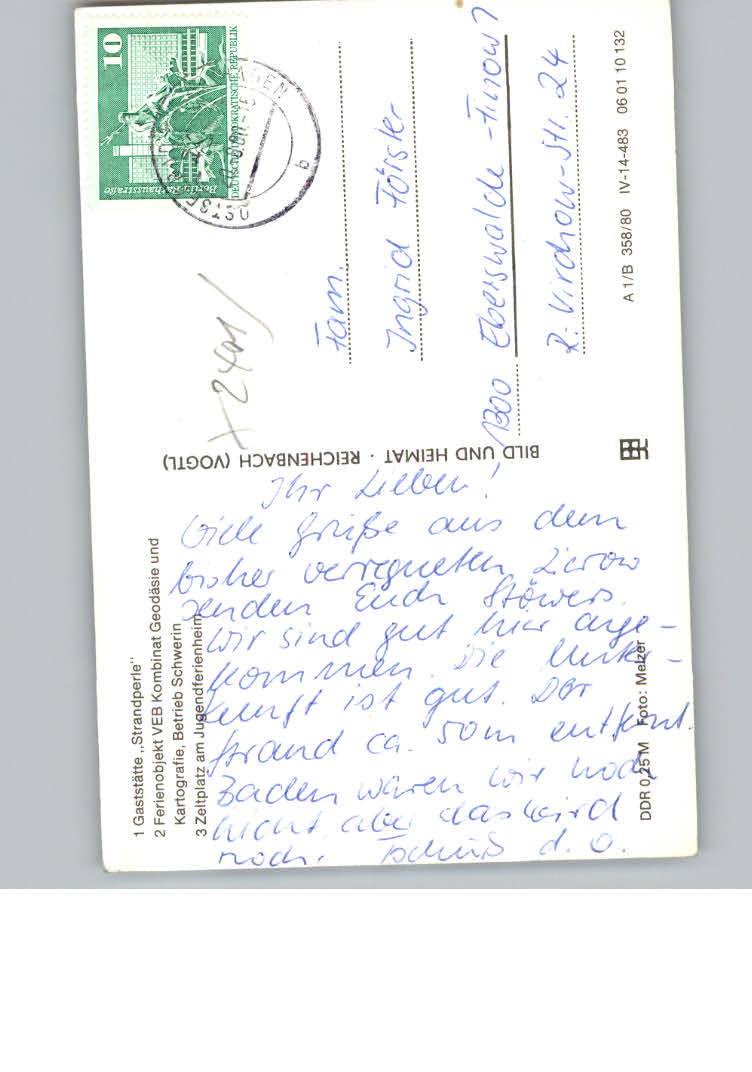 1 Gaststätte „Strandperle"
2 Ferienobjekt VEB Kombinat Geodäsie und
Kartografie, Betrieb Schwerin
3 Zeltplatz am Jugendferienheim
Ihr Lieben!
Viele Grüße aus dem
bisher verregneten Zierow
senden Euch Stöwers.
Wir sind gut hier ange-
kommen. Die Unter-
kunft ist gut. Der
Strand ca. 50m entfernt.
Baden waren wir noch
nicht, aber das wird
noch. Tschüß d. O.
BILD UND HEIMAT · REICHENBACH (VOGTL)
DDR 0,25 M Foto: Melzer
10
Berlin-Rathausstraße
DEUTSCHE DEMOKRATISCHE REPUBLIK
b
Fam.
Ingrid Förster
1300 Eberswalde-Finow 1
R.-Virchow-Str. 24
A 1/B 358/80 IV-14-483 06 01 10 132